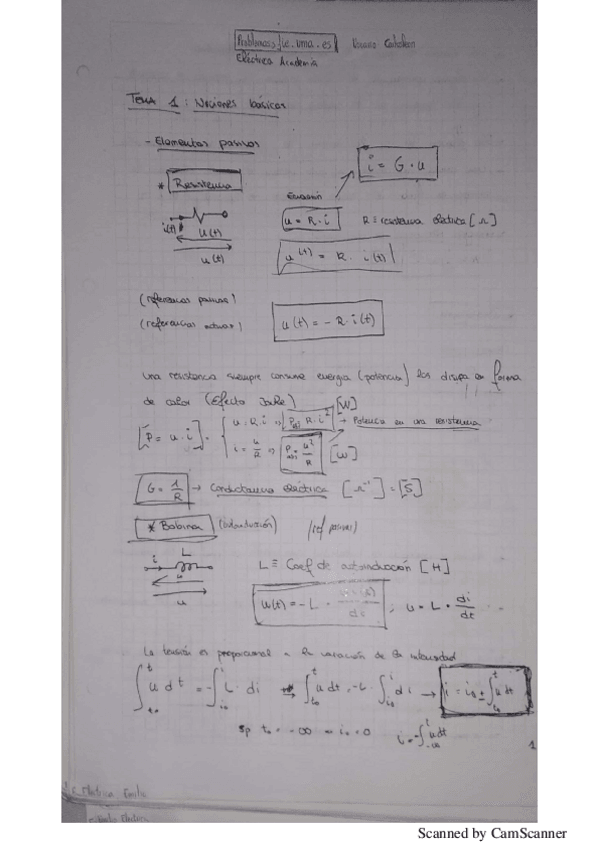 Eléctrica Academia
TEMA 1: Nociones básicas
- Elementos pasivos
i = G · u
* Resistencia
Ecuación
u = R · i
R ≡ resistencia eléctrica [Ω]
i(t)
u(t)
u(t) = R · i(t)
u(t)
(referencias pasivas)
(referencias activas)
u(t) = - R · i(t)
Una resistencia siempre consume energía (potencia) los disipa en forma
de calor (Efecto Joule)
[W]
[P = u · i]
u = R · i ⇒ P = R · i² → Potencia en una resistencia
i = u/R ⇒ P = u²/R [W]
G = 1/R → Conductancia eléctrica [Ω⁻¹] = [S]
* Bobina (autoinducción) (ref pasivas)
i L
u
u
L ≡ Coef de autoinducción [H]
u(t) = - L · di(t)/dt ; u = L · di/dt
La tensión es proporcional a la variación de la intensidad
∫ u dt = - ∫ L · di ⇒ ∫ u dt = - L · ∫ di → i = i₀ ± ∫ u dt
t₀ = - ∞ ⇒ i₀ = 0 i = - ∫ u dt
1
Scanned by CamScanner